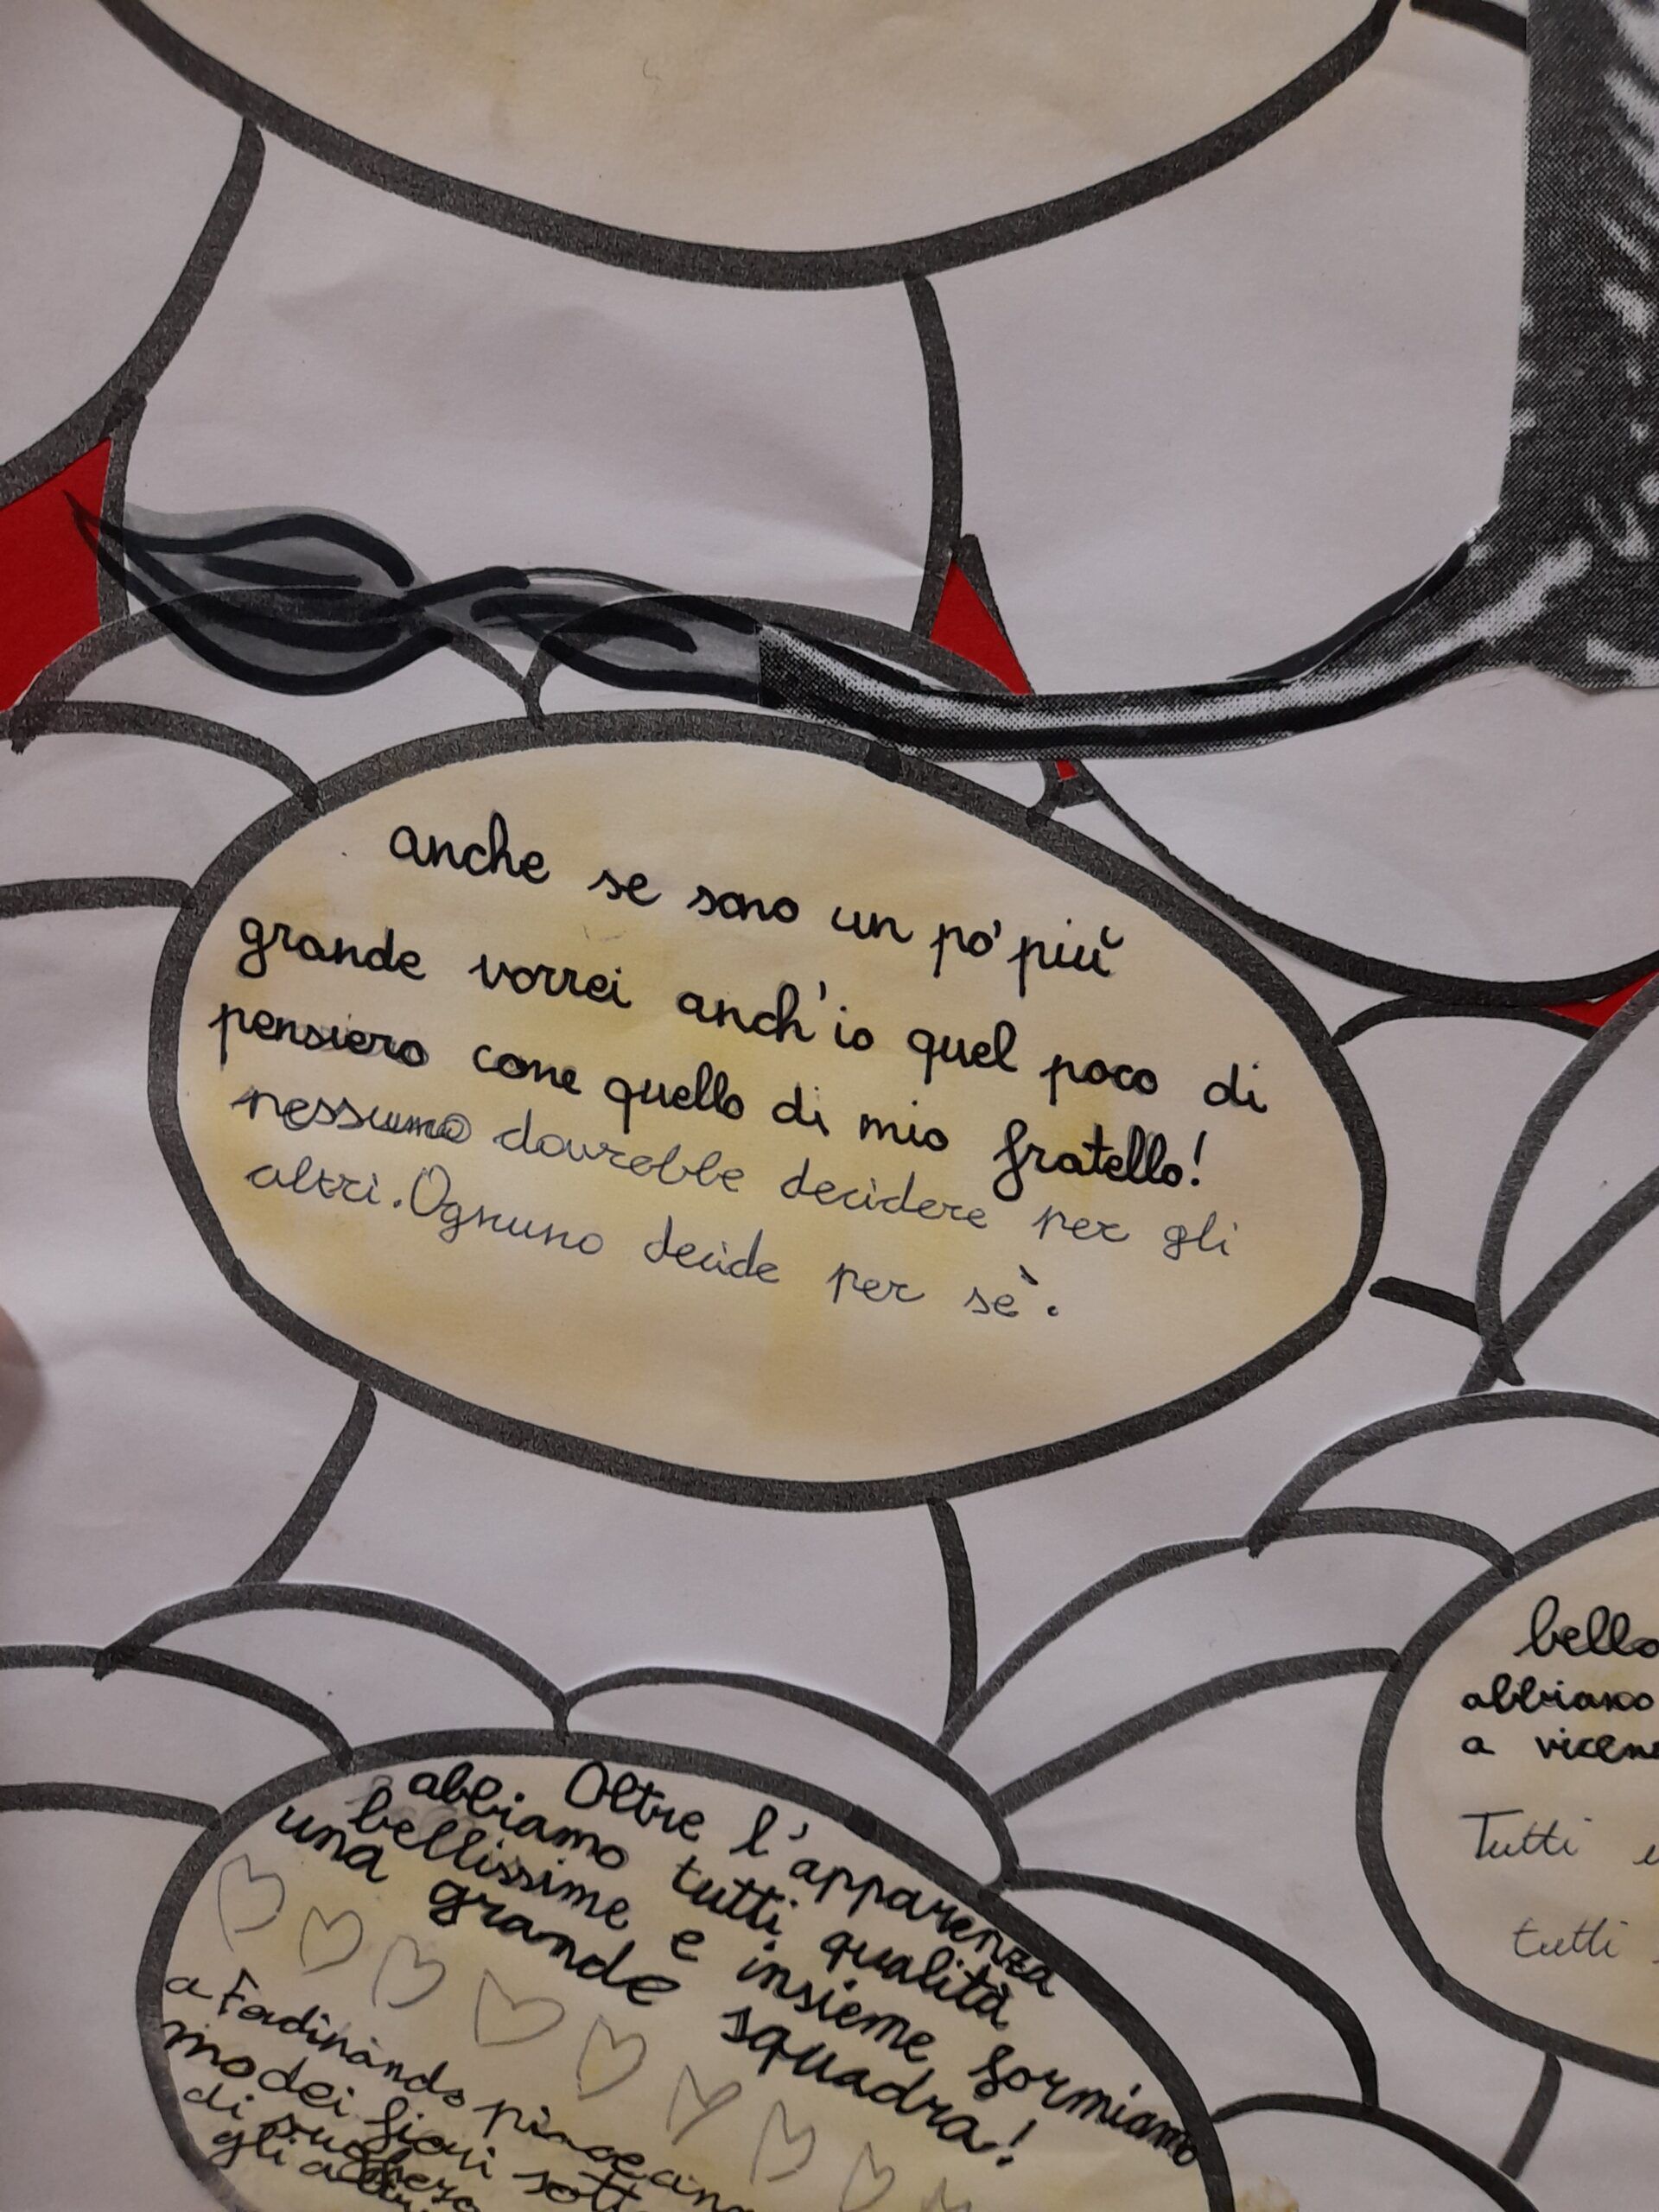 anche se sono un po' più
grande vorrei anch'io quel poco di
pensiero come quello di mio fratello!
nessuno dovrebbe decidere per gli
altri. Ognuno decide per sè.
Oltre l'apparenza
abbiamo tutti qualità
bellissime e insieme formiamo
una grande squadra!
a Ferdinando
modei fiori
di sughero
bello
abbiamo
a
Tutti
tutti